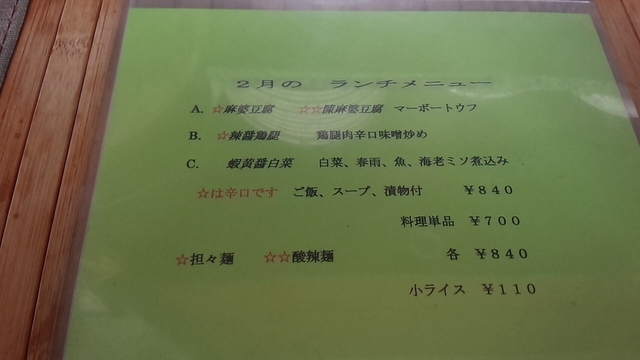 2月の ランチメニュー
A. ☆麻婆豆腐 ☆☆陳麻婆豆腐 マーボートウフ
B. ☆辣醤鶏腿 鶏腿肉辛口味噌炒め
C. 蝦黄醤白菜 白菜、春雨、魚、海老ミソ煮込み
☆は辛口です ご飯、スープ、漬物付 ¥840
料理単品 ¥700
☆担々麺 ☆☆酸辣麺 各 ¥840
小ライス ¥110